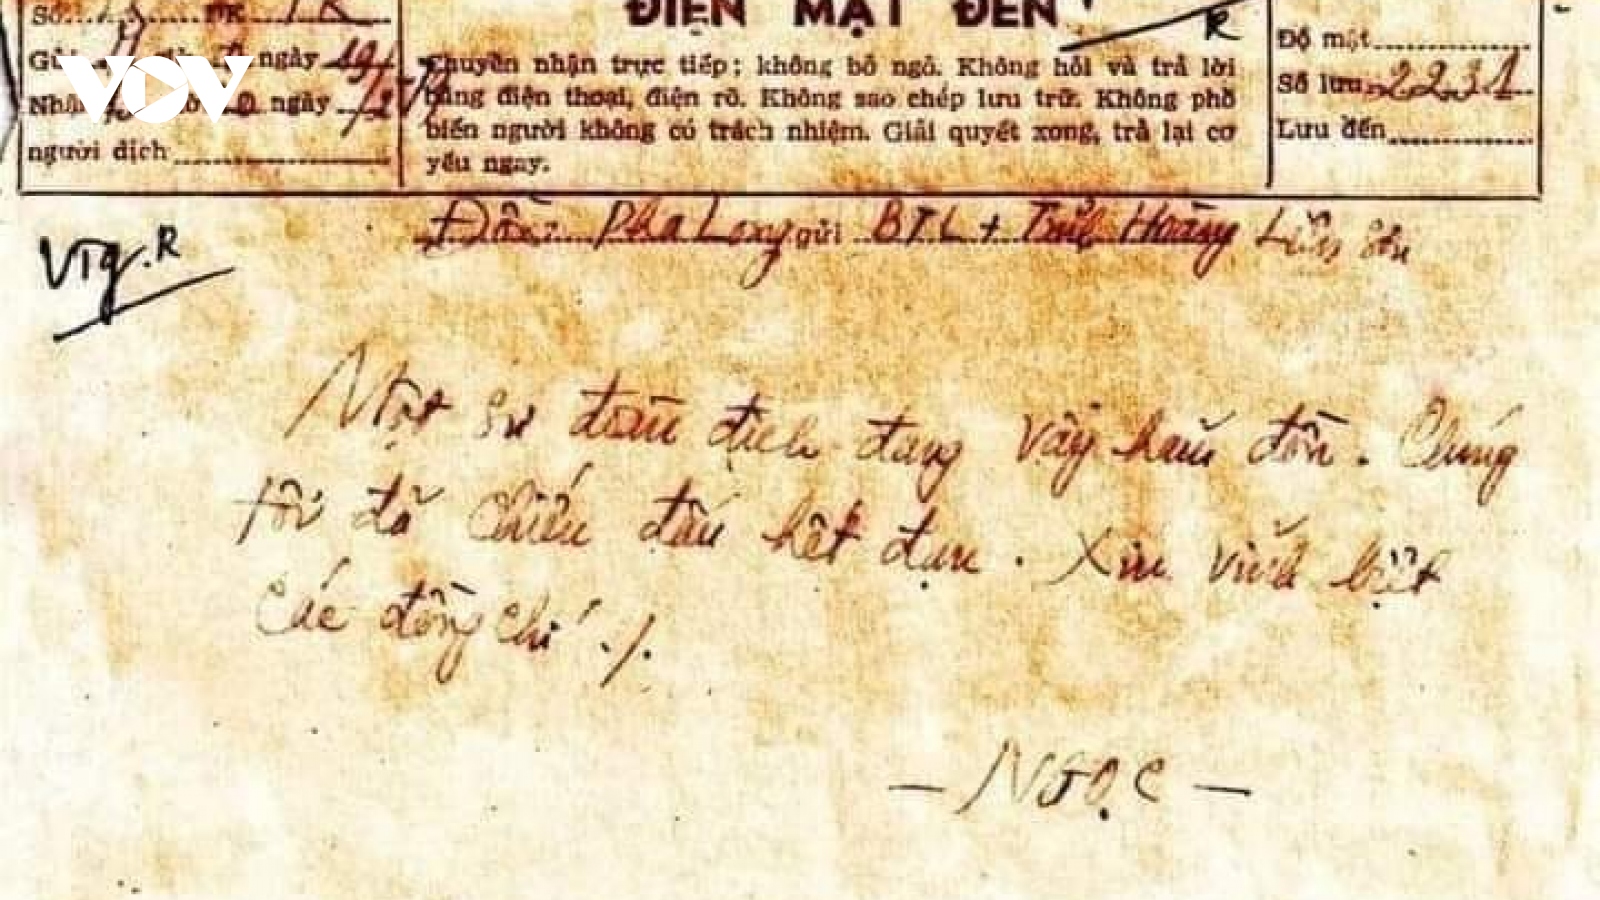 Số 13 ĐK TK
ĐIỆN MẬT ĐẾN
R
Độ mật
Gửi giờ ngày 19/2
Chuyền nhận trực tiếp; không bỏ ngỏ. Không hỏi và trả lời
Số lưu 2231
VOV
Nhận giờ ngày /2/79
bằng điện thoại, điện rõ. Không sao chép lưu trữ. Không phổ
biến người không có trách nhiệm. Giải quyết xong, trả lại cơ
Lưu đến
người dịch
yếu ngay.
Đồn: Pha Long gửi BTL + Tỉnh Hoàng Liên Sơn
R
Một sư đoàn địch đang vây hãm đồn. Chúng
tôi đã chiến đấu hết đạn. Xin vĩnh biệt
các đồng chí ./.
— NGỌC —